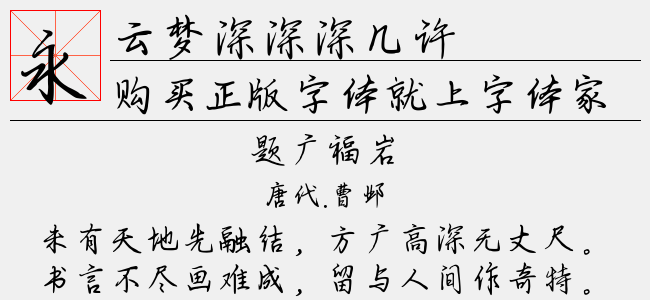 永
云梦深深深几许
购买正版字体就上字体家
题广福岩
唐代.曹邺
未有天地先融结，方广高深无丈尺。
书言不尽画难成，留与人间作奇特。